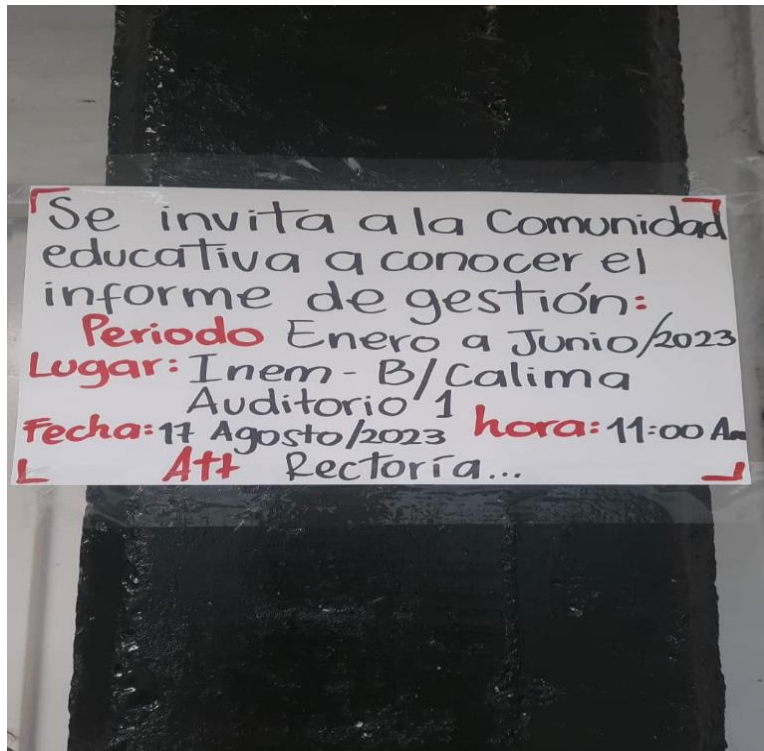 Se invita a la Comunidad
educativa a conocer el
informe de gestión:
Periodo Enero a Junio/2023
Lugar: Inem - B/Calima
Auditorio 1
Fecha: 17 Agosto/2023 hora: 11:00 Am
Att Rectoría...